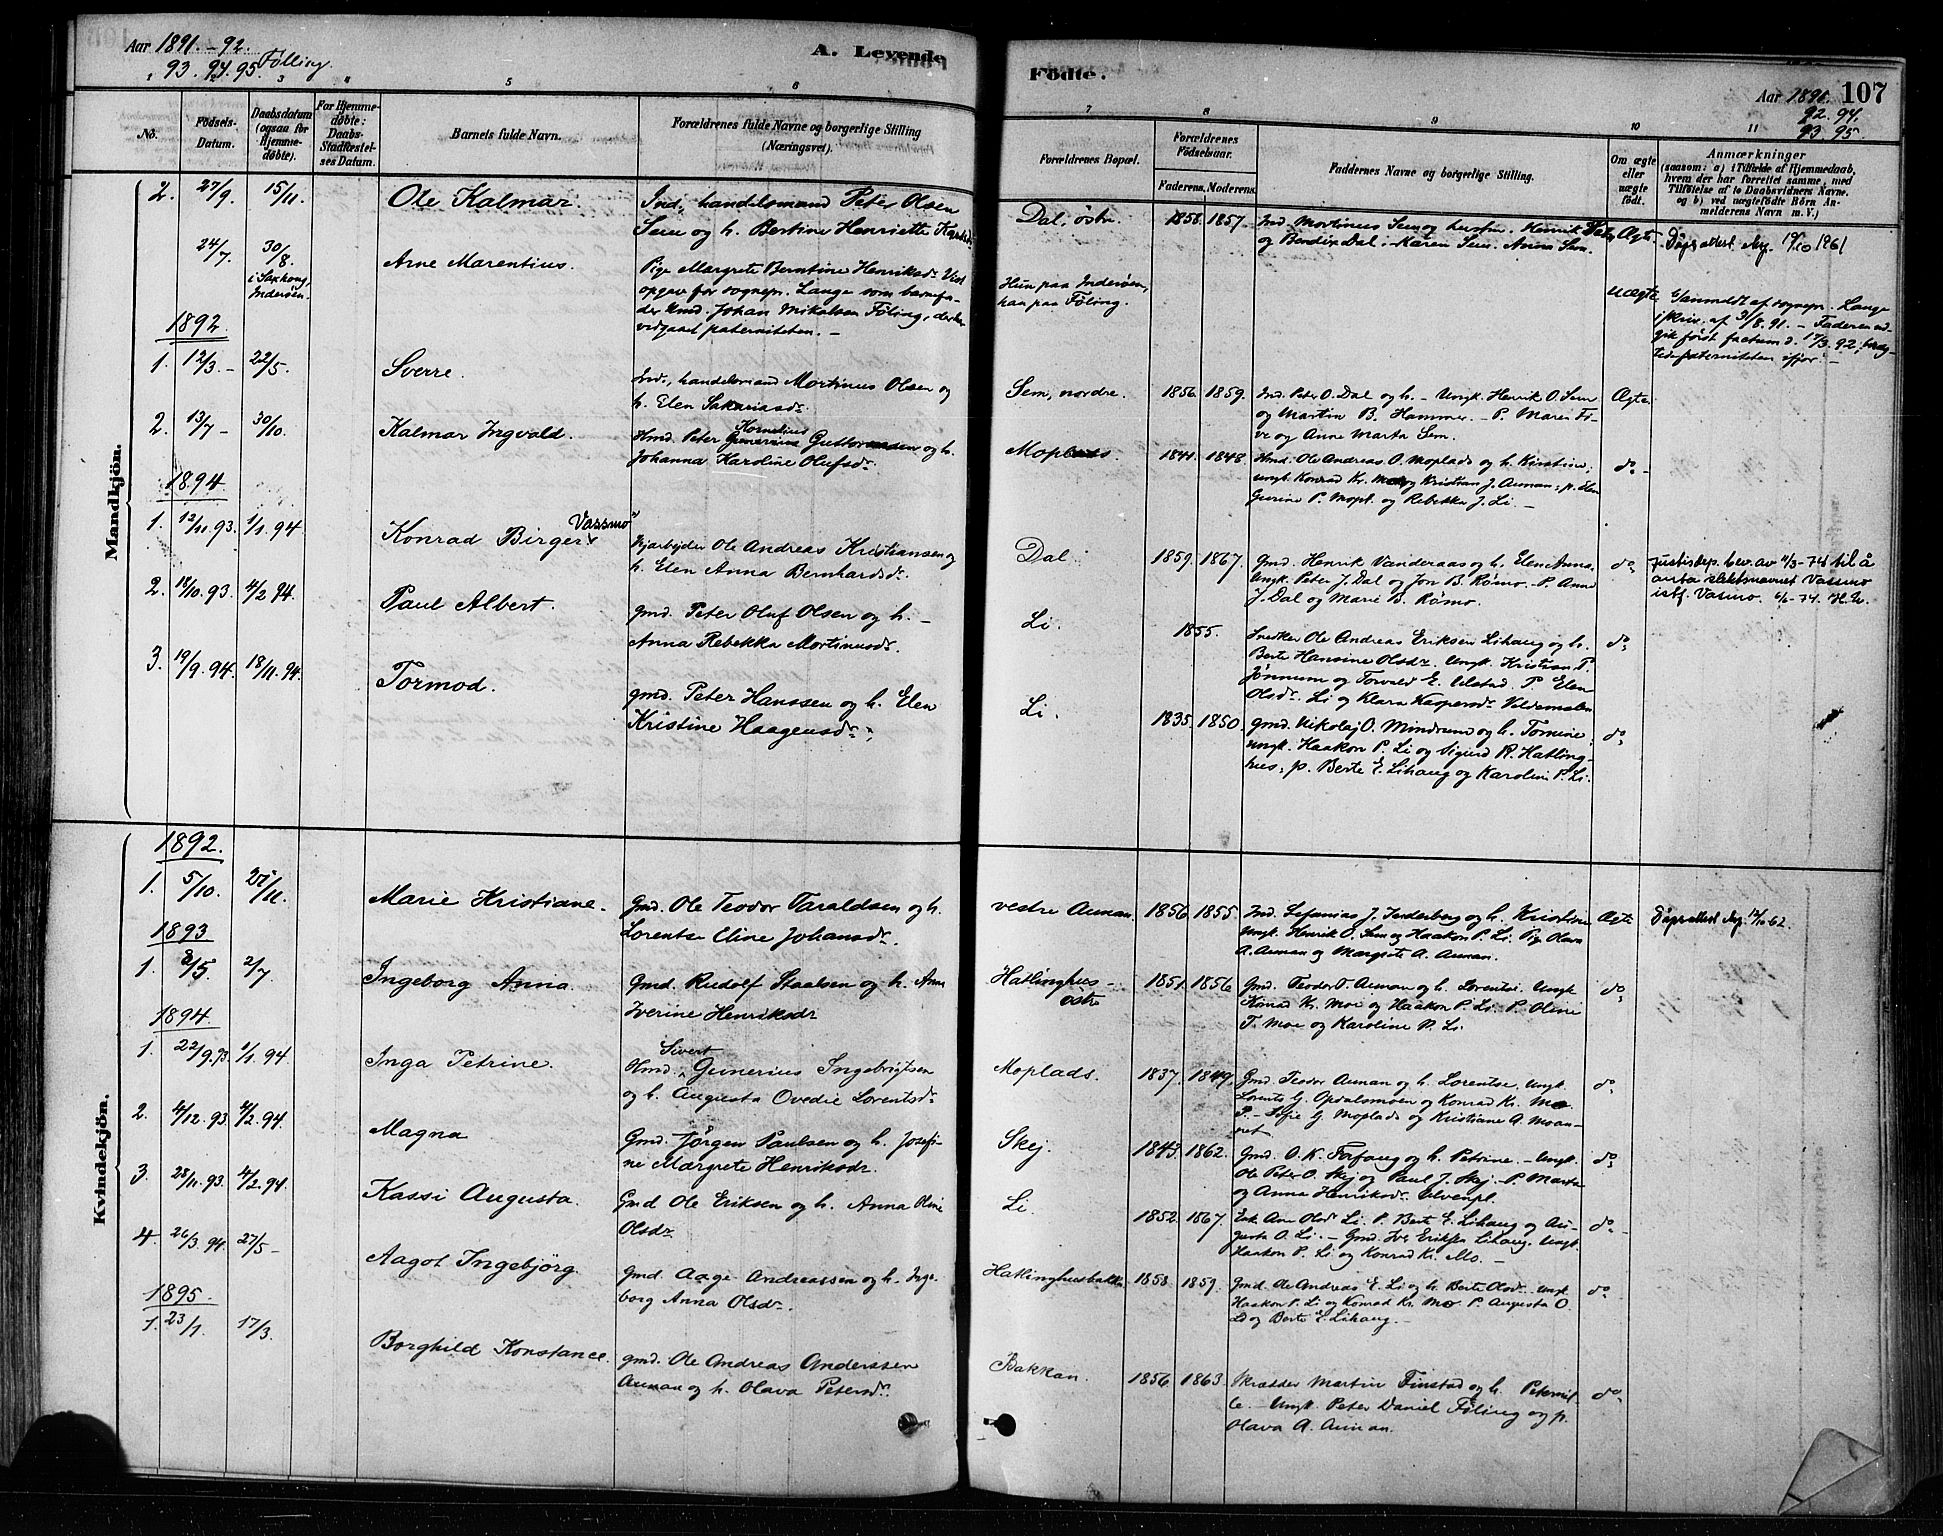 Aar 1891.-92.
93. 94. 95. Følling.
A. Levende
Födte.
Aar 1891.
92. 94.
93. 95.
107
5
6
7
8
9
10
11
No.
Födsels-
Datum.
Daabsdatum
(ogsaa for
Hjemme-
døbte).
For Hjemme-
døbte:
Daabs-
Stadfæstel-
ses Datum.
Barnets fulde Navn.
Forældrenes fulde Navne og borgerlige Stilling
(Næringsvei).
Forældrenes Bopæl.
Forældrenes
Födselsaar.
Faderens. Moderens.
Faddernes Navne og borgerlige Stilling.
Om ægte
eller
uægte
født.
Anmærkninger
(saasom: a) i Tilfælde af Hjemmedaab,
hvem der har forrettet samme, med
Tilføielse af to Daabsvidners Navne.
og b) ved uægtefödte Börn An-
melderens Navn m. V.)
Mandkjön.
2. 27/9. 15/11. Ole Kalmar. Ind., handelsmand Peter Olsen
Sem og h. Bertine Henriette
Dal, östr. 1858. 1857. Ind. Mortinus Sem og hustru. Henrik
og Bendix Dal. Karen Sem. Anna Sem.
Ægte Dåpsattest 1961
24/7. 30/8.
i Saxhaug,
Inderöen.
Arne Marentius. Pige Margrete Berntine Henriksdr. Vist
opgav for sognepr. Lange som barnefa-
der Ymd. Johan Mikalsen Föling, der har
vedgaaet paterniteten. —
Hun paa Inderöen,
han paa Föling.
Uægte Lange
i skriv. af 3/8. 91. — Faderen
gik först factum d. 17/3. 92,
paterniteten
1892.
1. 12/3. - 22/5. Sverre. Ind., handelsmand Mortinus Olsen og
h. Elen Sakariasdr.
Sem, nordre. 1856. 1859. Ind. Peter O. Dal og h. — Ungk. Henrik O. Sem
og Martin B. Hammer. — P. Maren
og Anne Marta Sem.
Ægte.
2. 13/7 - 30/10. Kalmar Ingvald. Hmd. Peter Kornelius Guttormsen og h.
Johanna Karoline Olufsdr.
Moplads. 1841. 1848. Hmd. Ole Andreas O. Moplads og h. Kirstine;
ungk. Konrad Kr. Mo og Kristian J. Auman; p. Elen
Gurine P. Mopl. og Rebekka J. Li. —
do -
1894
1. 12/11. 93. 1/1. 94. Konrad Birger Vassmo" Ole Andreas Kristiansen og
h. Elen Anna Bernhardsdr.
Dal. 1859. 1867. Gmd. Henrik Vanderaas og h. Elen Anna.
Ungk. Peter J. Dal og Jon B. Römo. — P. Anna
J. Dal og Marie B. Römo.
do justisdep. bev. av 11/3-74 til å
anta slektsnavnet Vassmo
istf. Vasmo. 6/6-74.
2. 18/10. 93. 4/2 94. Paul Albert. Gmd. Peter Oluf Olsen og h. —
Anna Rebekka Mortinusdr.
Li. 1855. Snedker Ole Andreas Eriksen Lihaug og h.
Berte Hansine Olsdr. Ungk. Kristian P.
Jönnum og Torvald E. Ulstad. P. Elen
Olsdr. Li og Klara Kaspersdr. Voldemalen
do
3. 19/9. 94. 18/11. 94. Tormod. gmd. Peter Hanssen og h. Elen
Kristine Haagensdr.
Li. 1835. 1850. gmd. Nikolaj O. Mindrum og h. Tomine;
ungk. Haakon P. Li og Sigurd R. Hatling-
hus; p. Berte E. Lihaug og Karoline P. Li.
do
Kvindekjön.
1892.
1. 5/10. 27/11. Marie Kristiane. Gmd. Ole Teodor Taraldsen og h.
Lorentse Eline Johansdr.
vestre Auman. 1856. 1855. Ind. Sefanias J. Sunderberg og h. Kristine
Ungk. Henrik O. Sem og Haakon P. Li. Pig. Olava
A. Auman og Margrete A. Auman.
Ægte Dåpsattest 62.
1893
1. 3/5. 2/7. Ingeborg Anna. Gmd. Rudolf Staalsen og h. Anna
Iverine Henriksdr
Hatlinghus -
östr. 1851. 1856 Gmd. Teodor T. Auman og h. Lorentse. Ungk.
Konrad Kr. Moe og Haakon P. Li. P. Oline
T. Moe og Karoline P. Li.
do
1894.
1. 22/9. 93. 1/1. 94. Inga Petrine. Hmd. Sivert Gunerius Ingebrigtsen
og h. Augusta Ovedie Lorentsdr
Moplads. 1837. 1849. Gmd. Teodor Auman og h. Lorentse. Ungk.
Lorents G. Opdalsmoen og Konrad Kr. Mo.
P. — Sofie G. Moplads og Kristiane A. Moan-
do
2. 4/12. 93. 4/2. 94. Magna Gmd. Jörgen Paulsen og h. Josefi-
ne Margrete Henriksdr.
Skej. 1843. 1862. Gmd. O. K. Fafaug og h. Petrine. — Ungk.
Ole Peter O. Skej og Paul J. Skej. — P. Marta
og Anna Henriksdr. Elvenpl.
do
3. 28/11. 93. 4/2. 94. Kassi Augusta. Gmd Ole Eriksen og h. Anna Oline
Olsdr
Li. 1852. 1867. Olsdr Li. P. Berte E. Lihaug og Au-
gusta O. Li. — Gmd. Iver Eriksen Lihaug. Ungk.
Haakon P. Li og Konrad Kr. Mo. —
do -
4. 26/3. 94. 27/5 - Aagot Ingebjörg. Gmd. Aage Andreassen og h. Inge-
borg Anna Olsdr.
Hatlinghusbakke 1858. 1859. Gmd. Ole Andreas E. Li og h. Berte Olsdr. Ungk
Haakon P. Li og Konrad Kr. Mo P. Augusta O.
Li og Berte E. Lihaug. —
do
1895.
1. 23/1. 17/3. Borghild Konstance. gmd. Ole Andreas Anderssen
Auman og h. Olava Petersdr.
Bakkan. 1856 1863. Skrædder Martin Finstad og h. Peternil-
le. — Ungk. Peter Daniel Föling og p.
Olava A. Auman.
do